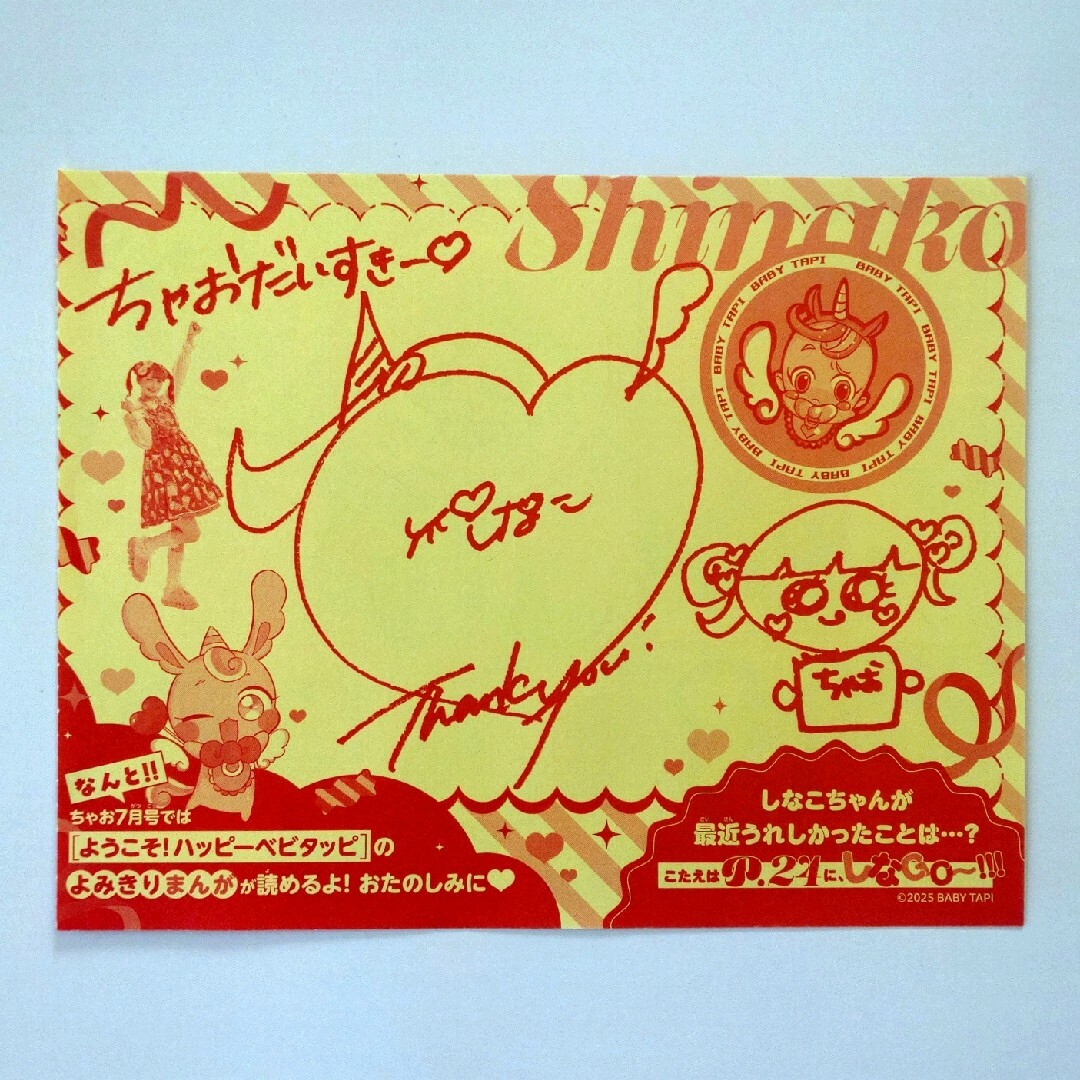 Shinako
ちゃおだいすきー♡
BABY TAPI BABY TAPI BABY TAPI BABY TAPI BABY TAPI BABY TAPI BABY TAPI
しなこ
Thankyou!
ちゃお
なんと!!
ちゃお7月号では
[ようこそ!ハッピーベビタッピ]の
よみきりまんがが読めるよ! おたのしみに♥
しなこちゃんが
最近うれしかったことは…?
こたえはP.24に、しなGo〜!!!
©2025 BABY TAPI